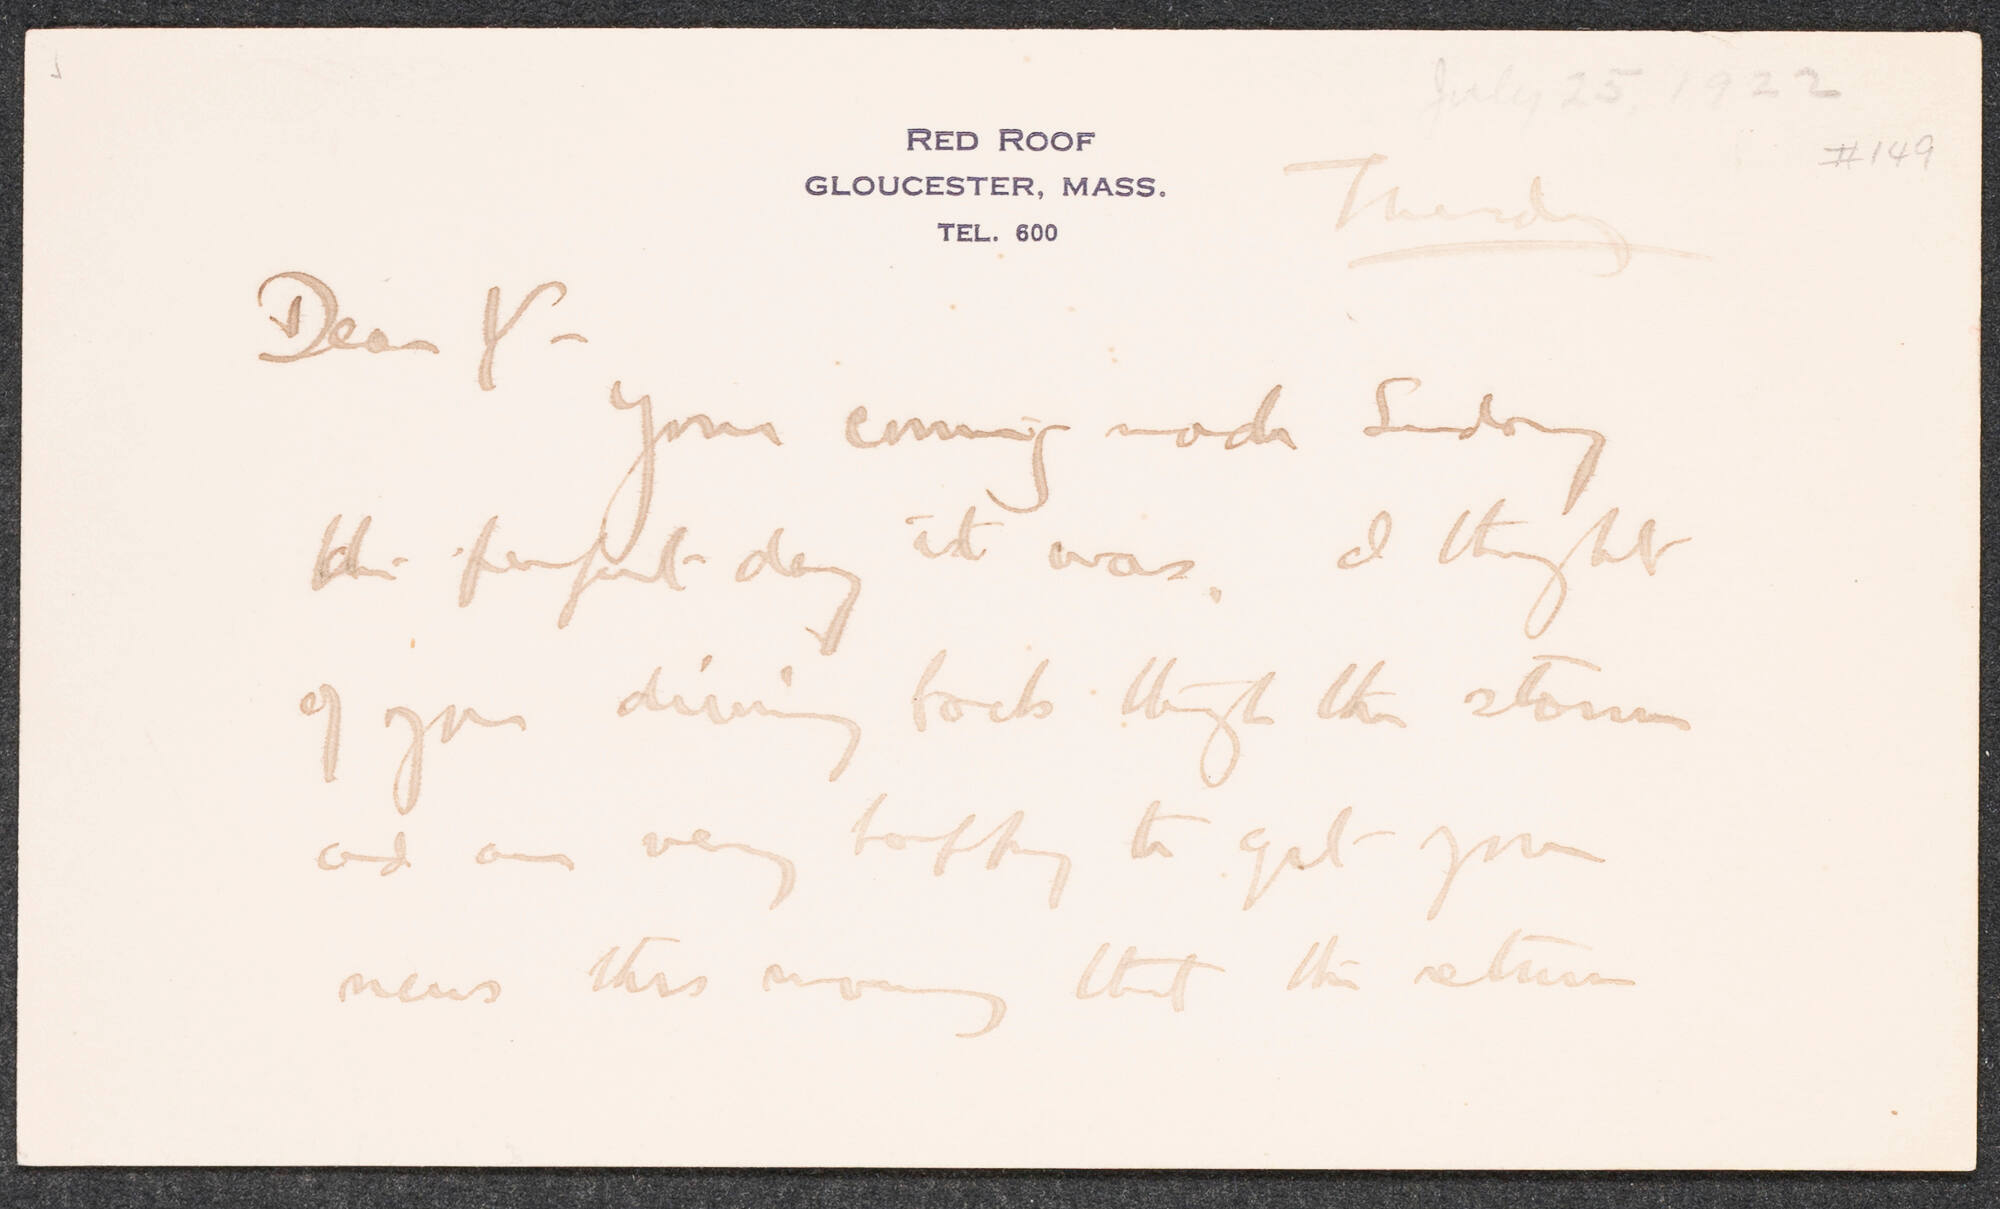 July 25, 1922
#149
RED ROOF
GLOUCESTER, MASS.
TEL. 600
Dear Y-
Your coming made Sunday
the perfect day it was. I thought
of you driving back through the storm
and am very happy to get your
news this morning that the return